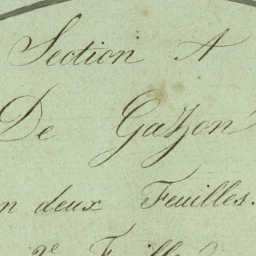 Section A
De Gazon
en deux Feuilles.
2e Feuille